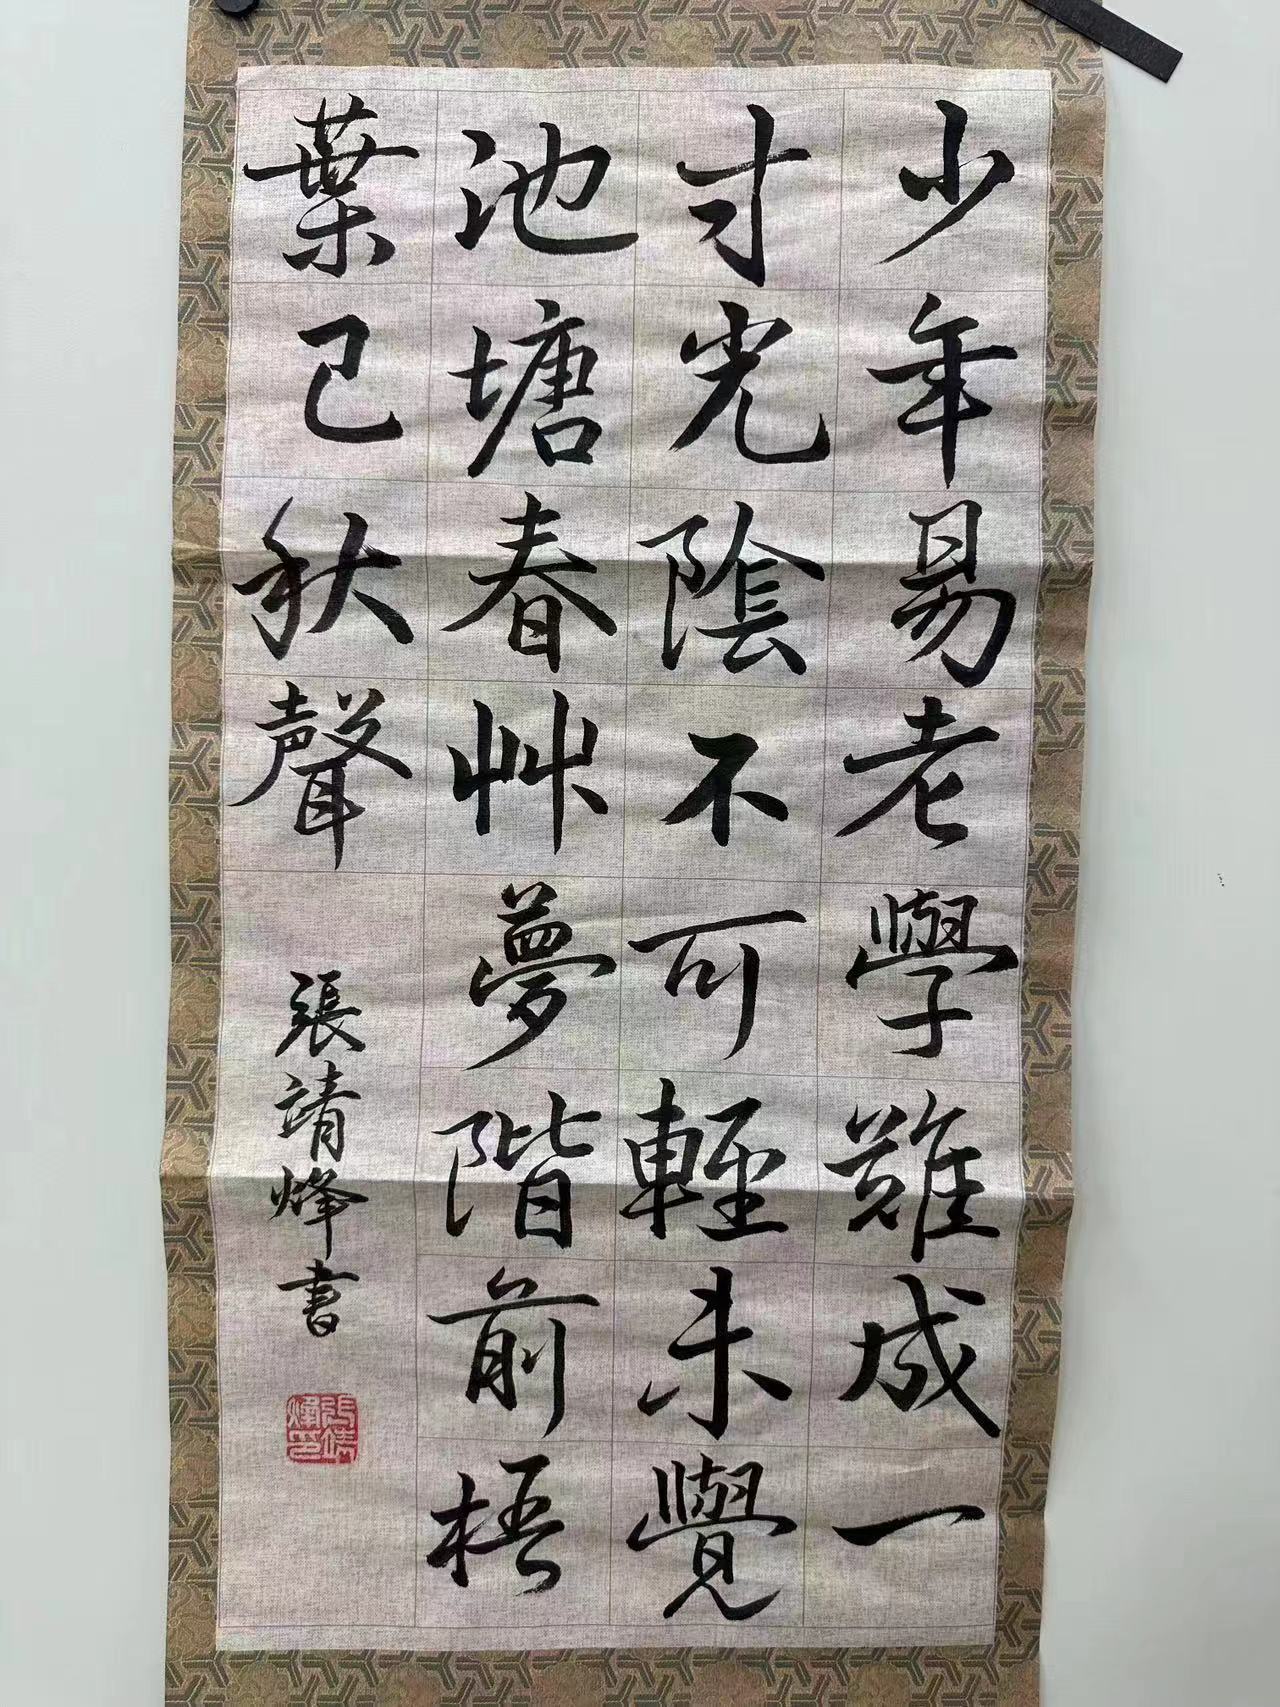 少年易老學難成一
寸光陰不可輕未覺
池塘春艸夢階前梧
葉已秋聲
張靖烽書
張靖烽印